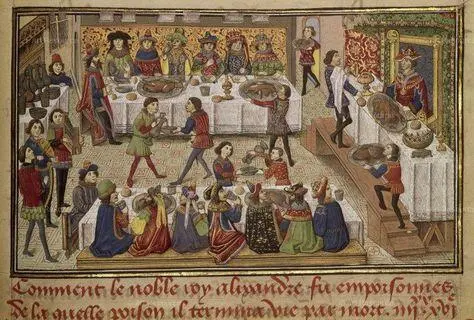 Comment le noble roy alixandre fu empoisonnes
de la quelle poison il termina vie par mort. iiijc xvj